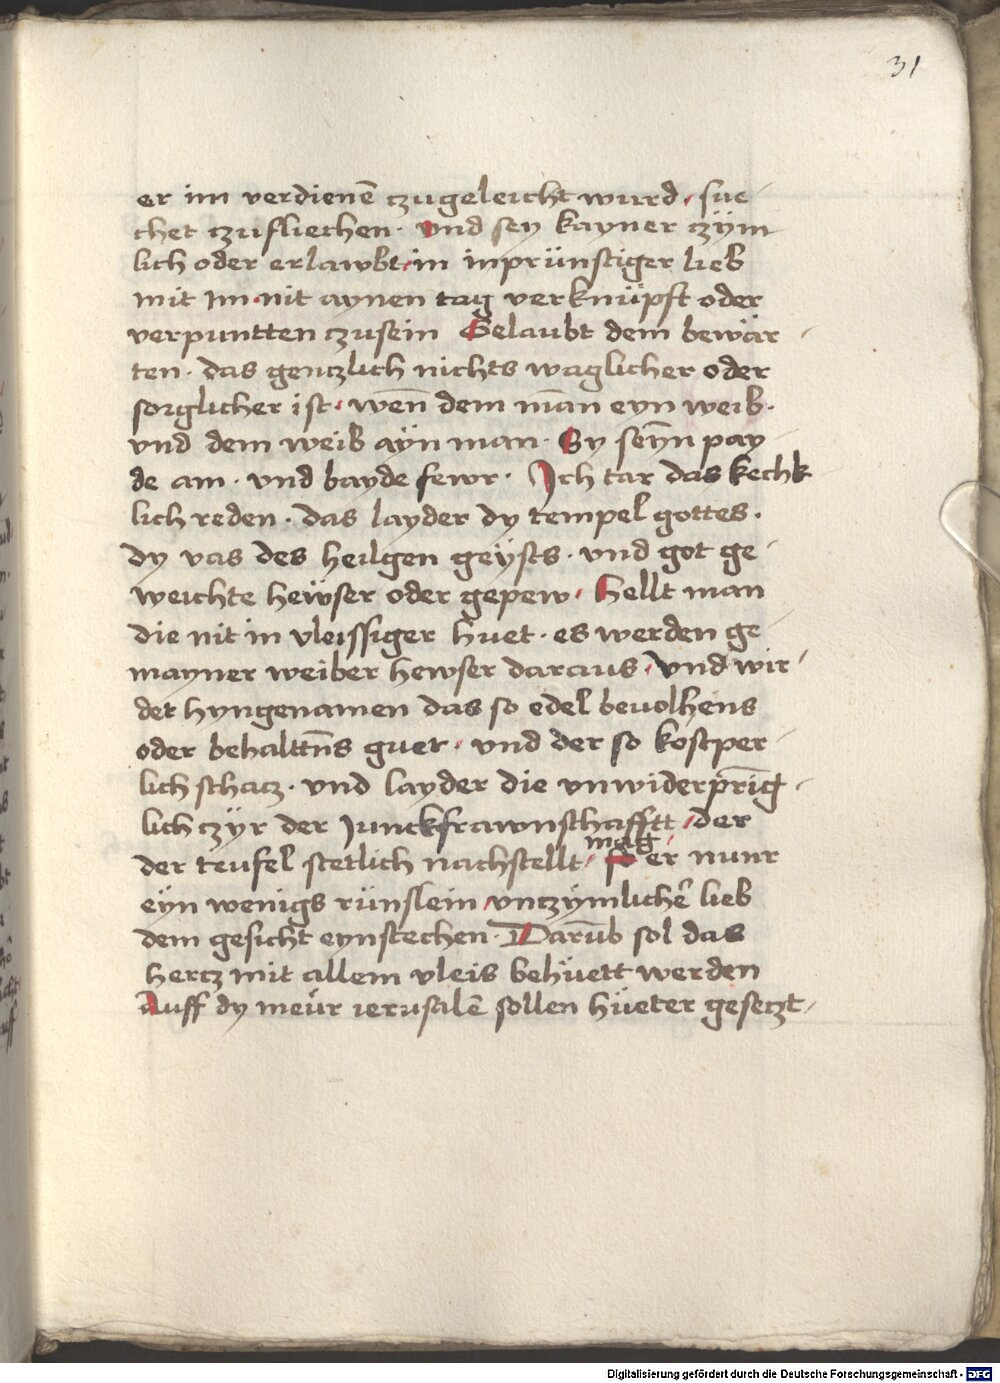 31
er im verdienē czugeleicht wurd, sue-
chet czufliechen. und sey kayner czÿm
lich oder erlawbt, in inprünstiger lieb
mit im nit aynen tag verknüpft oder
verpuntten czusein Gelaubt dem bewär-
ten. das genczlich nichts waglicher oder
sorglicher ist, wen̄ dem man̄ eyn weib.
vnd dem weib aÿn man. Sy seyn̄ pay-
de am. vnd bayde fewr. Ich tar das kechk
lich reden. das layder dy tempel gottes.
dy vas des heilgen geÿsts. vnd got ge-
weichte hewser oder gepew, hellt man
die nit in vleissiger huet. es werden ge-
mayner weiber hewser daraus, vnd wir-
det hyngenamen das so edel beuolhens
oder behaltt̄ns guet, vnd der so kostper-
lich schacz. vnd layder die vnwiderpr̄ing-
lich czÿr der Junckfrawnschafftt, der
mag
der teufel stetlich nachstellt, er nunr
eyn wenigs rünslein, vnczÿmlicher lieb
dem gesicht eynstechen. Darūb sol das
hercz mit allem vleis behüett werden
Auff dy meür ierusalē sollen hüeter geseczt-
Digitalisierung gefördert durch die Deutsche Forschungsgemeinschaft - DFG